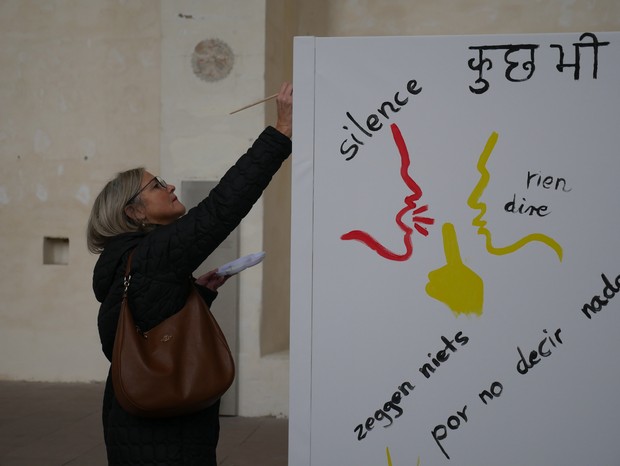 कुछ भी
silence
rien
dire
zeggen niets
por no decir nada